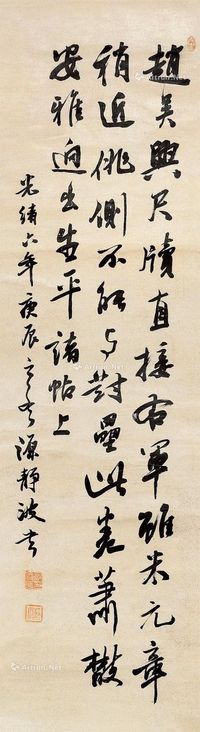 趙吳興尺牘直接右軍雖米元章
稍近佻側不能與對壘此卷蕭散
安雅迥出生平諸帖上
光緒六年庚辰 源靜波書
Artron.Net